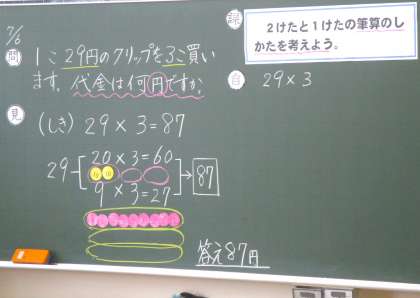 7/6
問 1こ29円のクリップを3こ買い
ます。代金は何円ですか。
見
(しき) 29×3=87
29
20×3=60
10 10
9×3=27
87
答え87円
課
2けたと1けたの筆算のし
かたを考えよう。
自 29×3